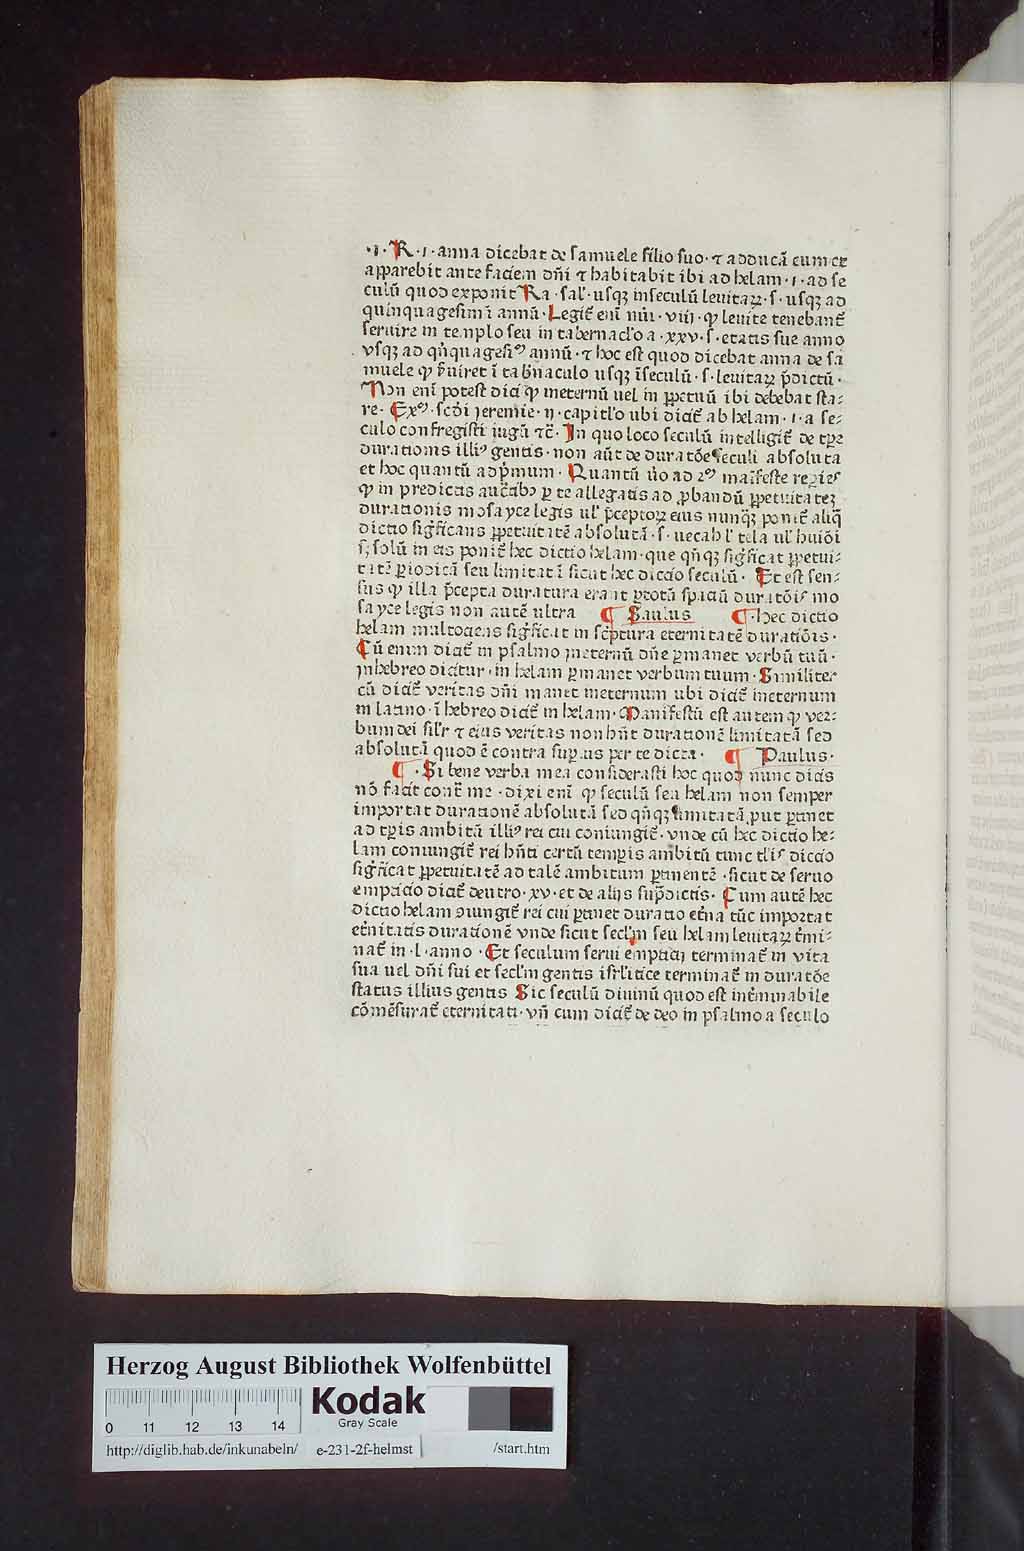 ·i· R·i· anna dicebat de samuele filio suo· ⁊ adducã eum et
apparebit ante faciem dñi ⁊ habitabit ibi ad helam·i·ad se
culũ quod exponit Ra·sal'·usqꝫ inseculũ leuitaꝝ·s·usqꝫ ad
quinquagesimũ annũ· Legit̃ enĩ nũi·viij·ꝙ leuite tenebant̃
seruire in templo seu in tabernaclo a·xxv·s·etatis sue anno
vsqꝫ ad qñquagesiꝰ annũ· ⁊ hoc est quod dicebat anna de sa
muele ꝙ s̃uiret ĩ tab̃naculo usqꝫ ĩseculũ·s·leuitaꝝ p̃dictũ·
Non enĩ potest dici ꝙ ineternũ uel in ꝑpetuũ ibi debebat sta⸗
re· Exꝰ·scđi jeremie·ij·capitl'o ubi dicit̃ ab helam·i·a se⸗
culo confregisti jugũ ⁊c̃· In quo loco seculũ intelligit̃ de tꝑe
durationis illiꝰ gentis· non aũt de duratõe seculi absoluta
et hoc quantũ ad p̃mum· Quantũ ũo ad 2ꝰ maĩfeste reꝑies
ꝙ in predictis auct̃ibꝰ ꝑ te allegatis ad ꝓbandũ ꝑpetuitateꝫ
durationis mosayce legis ul' p̃ceptoꝝ eius nunqꝫ̃ ponit̃ aliq̃
dictio sigñficans ꝑpetuitatẽ absolutã·s·uecah l' tela ul' huiõi
sꝫ solũ in eis ponit̃ hec dictio helam· que qñqꝫ sigñficat ꝑpetui⸗
tatẽ ꝑiodicã seu limitatã sicut hec dictio seculũ· Et est sen⸗
sus ꝙ illa p̃cepta duratura erant ꝑ totũ spaciũ duratõis mo
sayce legis non autẽ ultra ¶ Saulus ¶·Hec dictio
helam multociens sigñficat in sc̃ptura eternitatẽ duratiõis·
Cũ enim dicat̃ in psalmo jneternũ dñe ꝑmanet verbũ tuũ·
jnhebreo dicitur·in helam ꝑmanet verbum tuum· Similiter
cũ dicit̃ veritas dñi manet ineternum ubi dicit̃ ineternum
in latino· ĩ hebreo dicit̃ in helam· Manifestũ est autem ꝙ ver⸗
bum dei sil'r ⁊ eius veritas non hñt durationẽ limitatã sed
absolutã quod ẽ contra supius per te dicta· ¶ Paulus·
¶·Si bene verba mea considerasti hoc quod nunc dicis
nõ facit cont̃ me· dixi enĩ ꝙ seculũ seu helam non semper
importat durationẽ absolutã sed qñqꝫ limitatã ꝓut ꝑtinet
ad tꝑis ambitũ illiꝰ rei cui coniungit̃· vnde cũ hec dictio he⸗
lam coniungit̃ rei hñti certũ temꝑis ambitũ tunc tl'is dictio
sigñficat ꝑpetuitatẽ ad talẽ ambitum ꝑtinentẽ·sicut de seruo
empticio dicit̃ deutro·xv·et de alijs sup̃dictis· Cum autẽ hec
dictio helam ꝯiungit̃ rei cui ꝑtinet duratio et̃na tũc importat
et̃nitatis durationẽ vnde sicut secl'm seu helam leuitaꝝ t̃mi⸗
nat̃ in·l·anno· Et seculum serui empticij terminat̃ in vita
sua uel dñi sui et secl'm gentis isrl'itice terminat̃ in duratõe
status illius gentis Sic seculũ diuinũ quod est int̃minabile
cõmẽsurat̃ eternitati· vñ cum dicit̃ de deo in psalmo a seculo
Herzog August Bibliothek Wolfenbüttel
0 11 12 13 14
Kodak
Gray Scale
http://diglib.hab.de/inkunabeln/ e-231-2f-helmst /start.htm